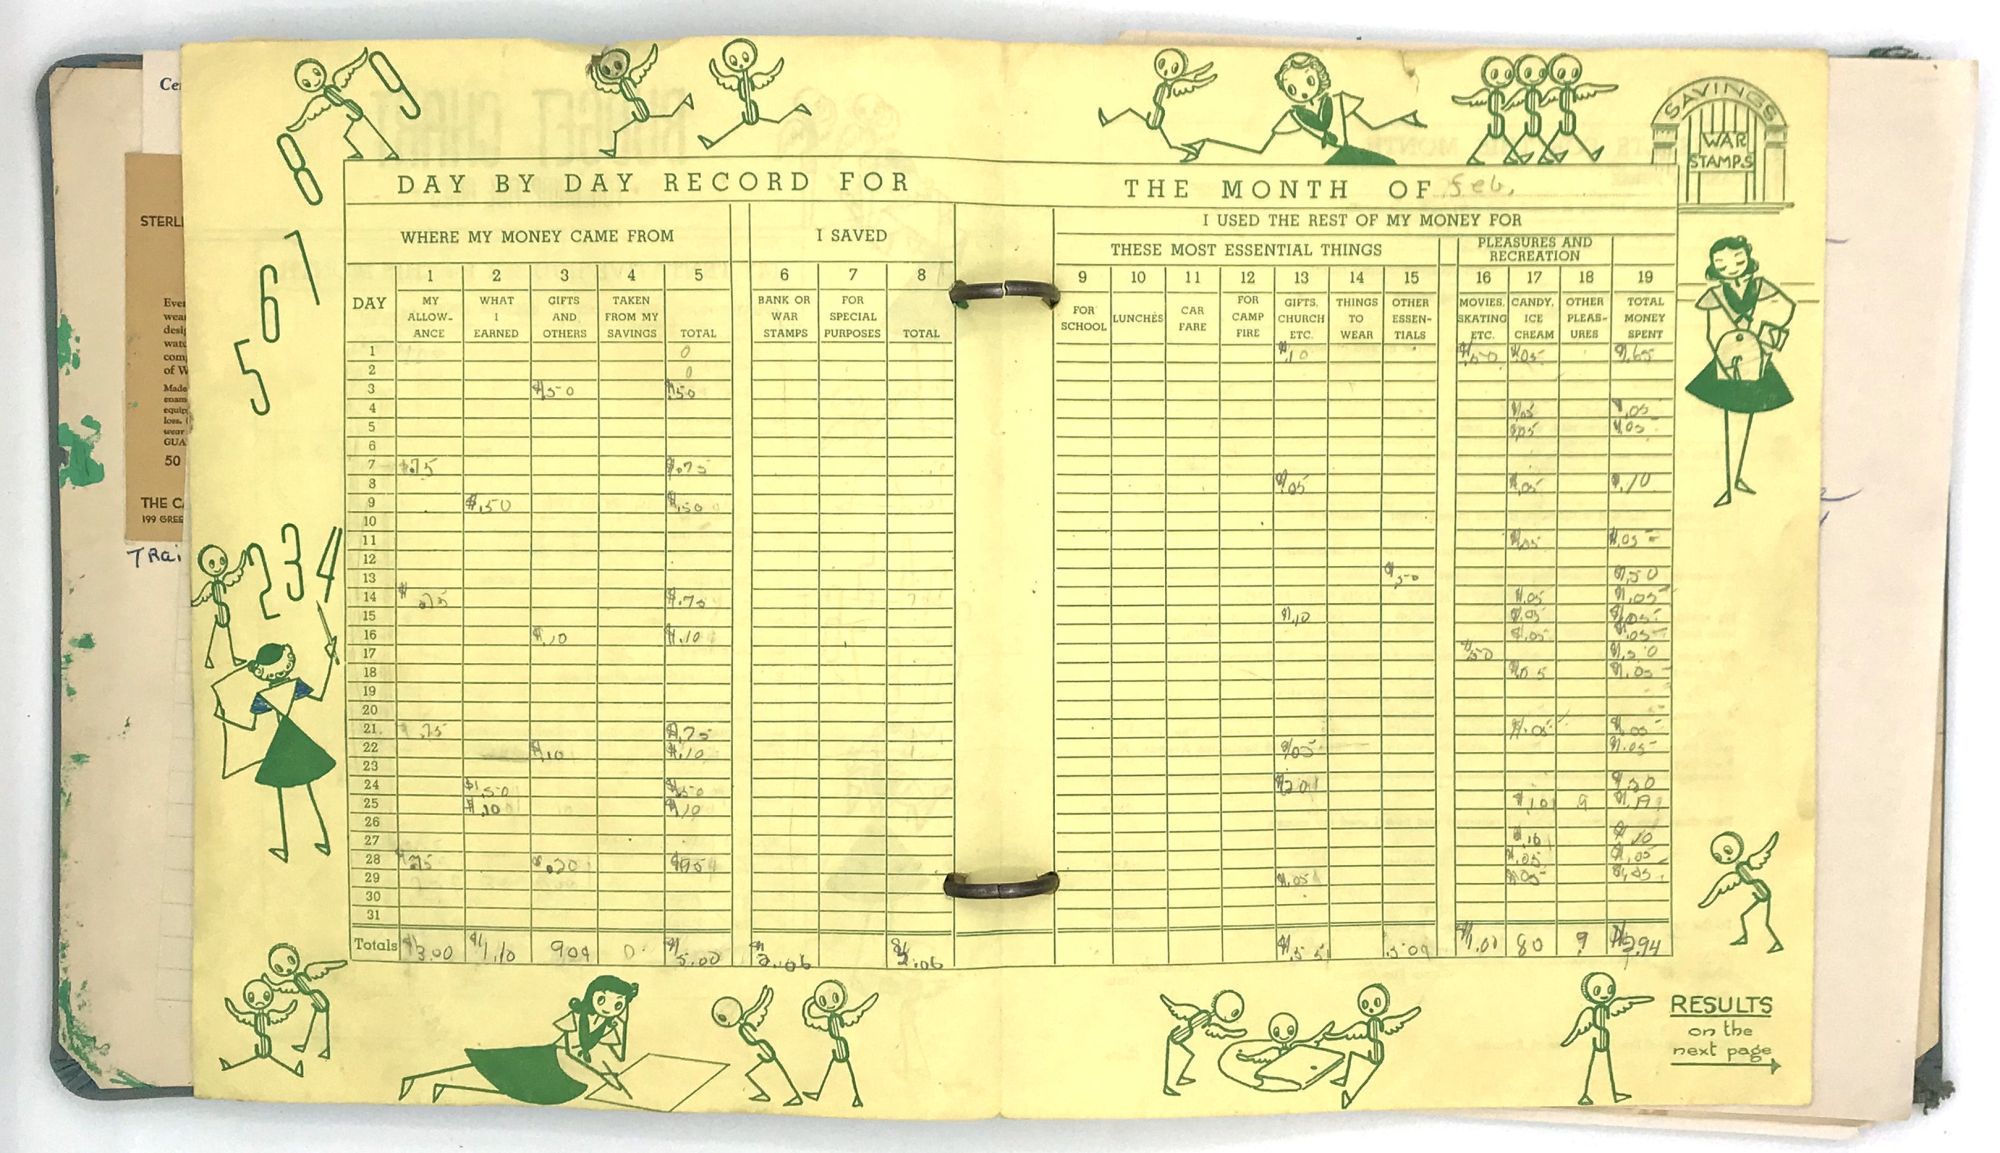 Cer
STERLI
Ever
wear
desig
watc
comp
of W
Made
enam
equip
loss. (
wear
GUA
50
THE CA
199 GREE
TRai
8 9
5 6 7
2 3 4
SAVINGS
WAR
STAMPS
DAY BY DAY RECORD FOR THE MONTH OF Feb.
WHERE MY MONEY CAME FROM
I SAVED
I USED THE REST OF MY MONEY FOR
THESE MOST ESSENTIAL THINGS
PLEASURES AND
RECREATION
1 2 3 4 5 6 7 8 9 10 11 12 13 14 15 16 17 18 19
DAY
MY
ALLOW-
ANCE
WHAT
I
EARNED
GIFTS
AND
OTHERS
TAKEN
FROM MY
SAVINGS
TOTAL
BANK OR
WAR
STAMPS
FOR
SPECIAL
PURPOSES
TOTAL
FOR
SCHOOL
LUNCHES
CAR
FARE
FOR
CAMP
FIRE
GIFTS,
CHURCH
ETC.
THINGS
TO
WEAR
OTHER
ESSEN-
TIALS
MOVIES,
SKATING
ETC.
CANDY,
ICE
CREAM
OTHER
PLEAS-
URES
TOTAL
MONEY
SPENT
1 0 $.10 $.50 $.05 $.65
2 0
3 $.50 $.50
4 $.05 $.05
5 $.05 $.05
6
7 $.75 $.75
8 $.05 $.05 $.10
9 $.50 $.50
10
11 $.05 $.05
12
13 $.50 $.50
14 $.75 $.75 $.05 $.05
15 $.10 $.05
16 $.10 $.10 $.05 $.05
17 $.50 $.50
18 $.05 $.05
19
20
21 .75 $.75 $.05 $.05
22 $.10 $.10 $.05 $.05
23
24 $.50 $.50 $.20
25 $.10 $.10 $.10 9 $.19
26
27 $.10 $.10
28 $.75 $.20 $.95 $.05 $.05
29 $.05 $.05
30
31
Totals $3.00 $1.10 90¢ 0 $5.00 $2.06 $2.06 80 9
RESULTS
on the
next page